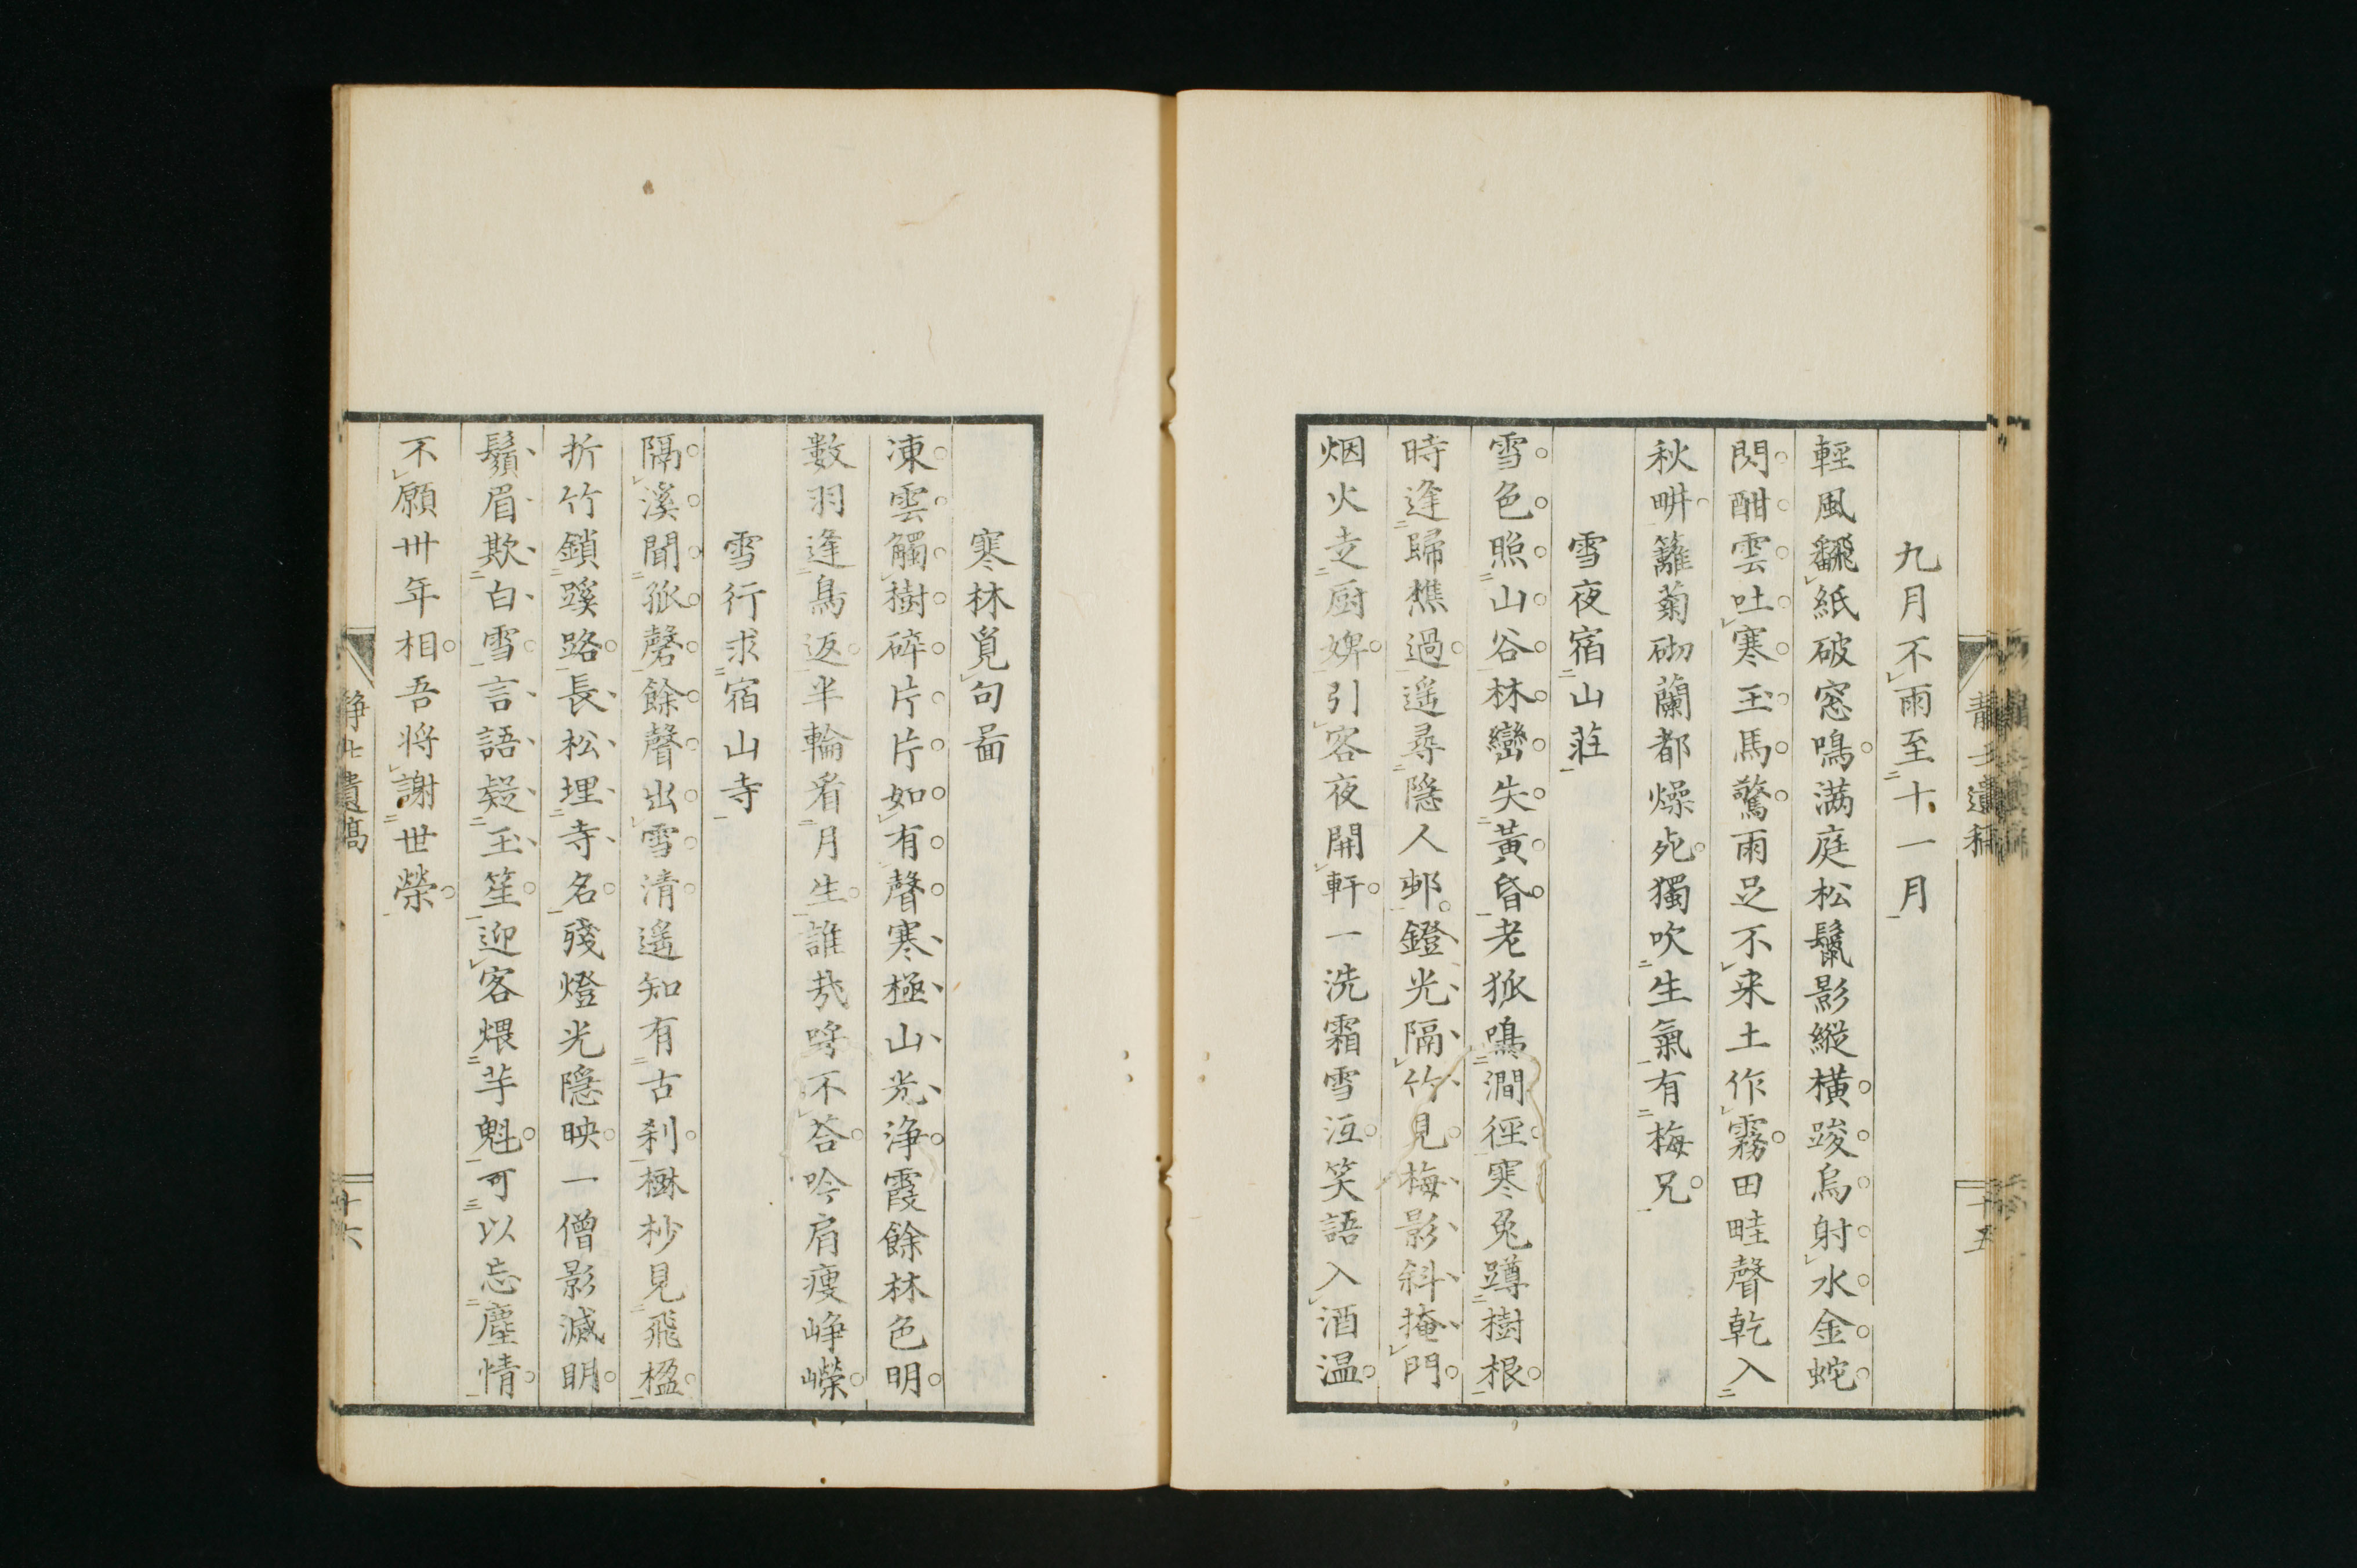 九月不雨至十一月
輕風飜紙破窓鳴滿庭松鬣影縱橫踆烏射水金蛇
閃酣雲吐寒玉馬驚雨足不来土作霧田畦聲乾入
秋畊籬菊砌蘭都燥死獨吹生氣有梅兄
雪夜宿山莊
雪色照山谷林巒失黃昏老狐鳴澗徑寒兔蹲樹根
時逢歸樵過遥尋隱人邨鐙光隔竹見梅影斜掩門
烟火走厨婢引客夜開軒一洗霜雪沍笑語入酒温
寒林覓句啚
凍雲觸樹碎片片如有聲寒極山光淨霞餘林色明
數羽逢鳥返半輪看月生誰哉呼不荅吟肩瘦崢嶸
雪行求宿山寺
隔溪聞孤磬餘聲出雪清遥知有古刹楙杪見飛楹
折竹鎖蹊路長松埋寺名殘燈光隱映一僧影滅明
鬚眉欺白雪言語疑玉笙迎客煨芋魁可以忘塵情
不願卅年相吾將謝世榮
遺稿
十五
遺稿
十六